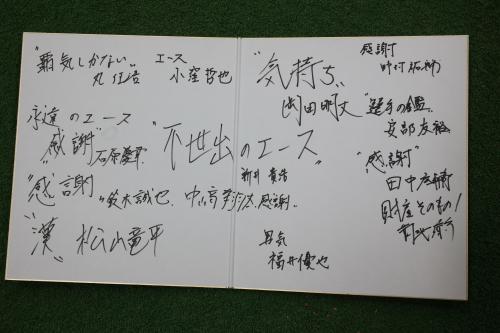 "覇気しかない。"
丸佳浩
エース
小窪哲也
永遠のエース
"感謝"
石原慶幸
"感謝"
鈴木誠也
中﨑翔太
感謝。
"漢"
松山竜平
"気持ち"
岡田明丈
感謝
野村祐輔
"選手の鑑"
安部友裕
"不世出のエース"
新井貴浩
"感謝"
田中広輔
財産そのもの!
男気
福井優也